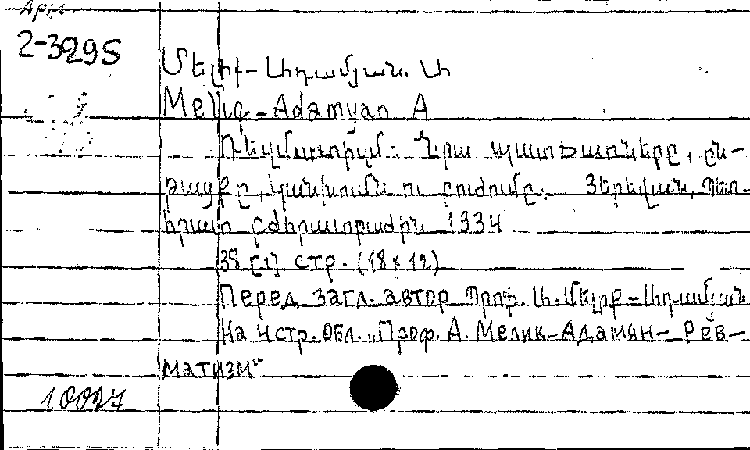 Арм.
2-3295
Մելիք-Ադամյան. Ա
Meliq-Adamyan A
Ռևմատիզմ: Նրա պատճառները, ըն-
թացքը, կանխումն ու բուժումը. Յերեվան, Պետ-
հրատ բժերատբաժին 1934
38 [1] стр. (18x12)
Перед загл. автор Պրոֆ. Ա. Մելիք-Ադամյան
На 4 стр. обл. „Проф. А. Мелик-Адамян- Рев-
матизм“
10027